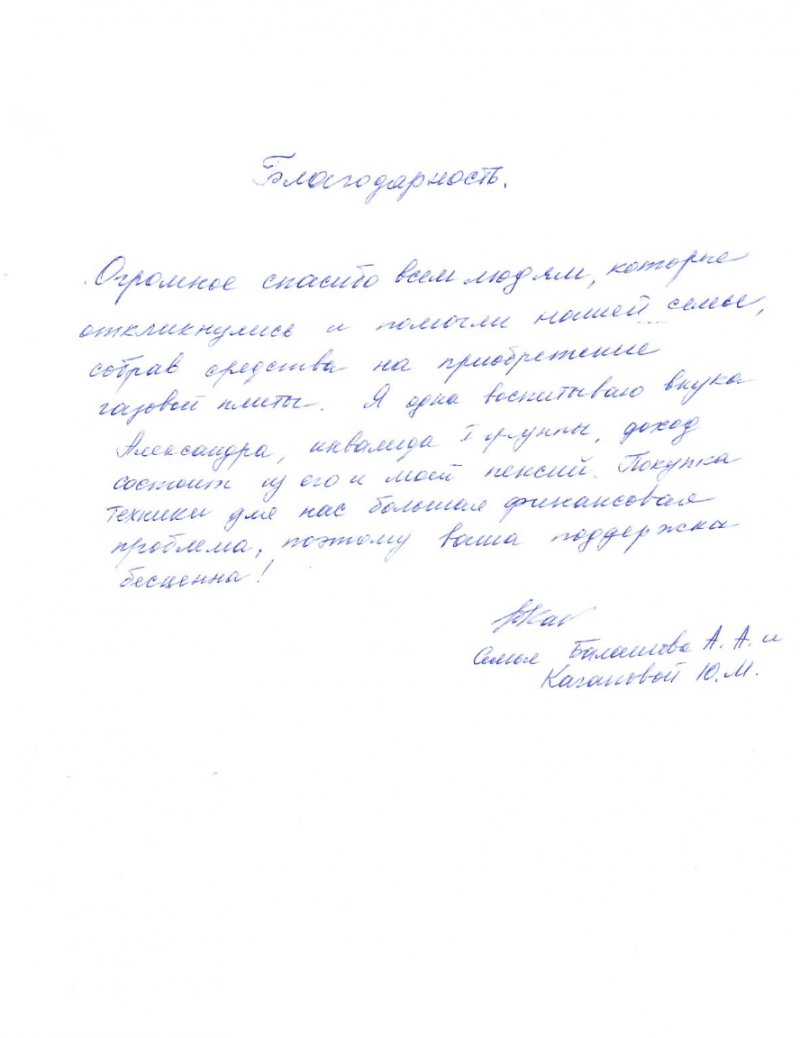 Благодарность.
Огромное спасибо всем людям, которые
откликнулись и помогли нашей семье,
собрав средства на приобретение
газовой плиты. Я одна воспитываю внука
Александра, инвалида I группы, доход
состоит из его и моей пенсий. Покупка
техники для нас большая финансовая
проблема, поэтому ваша поддержка
бесценна!
Семья Балашова А. А. и
Кагановой Ю. М.